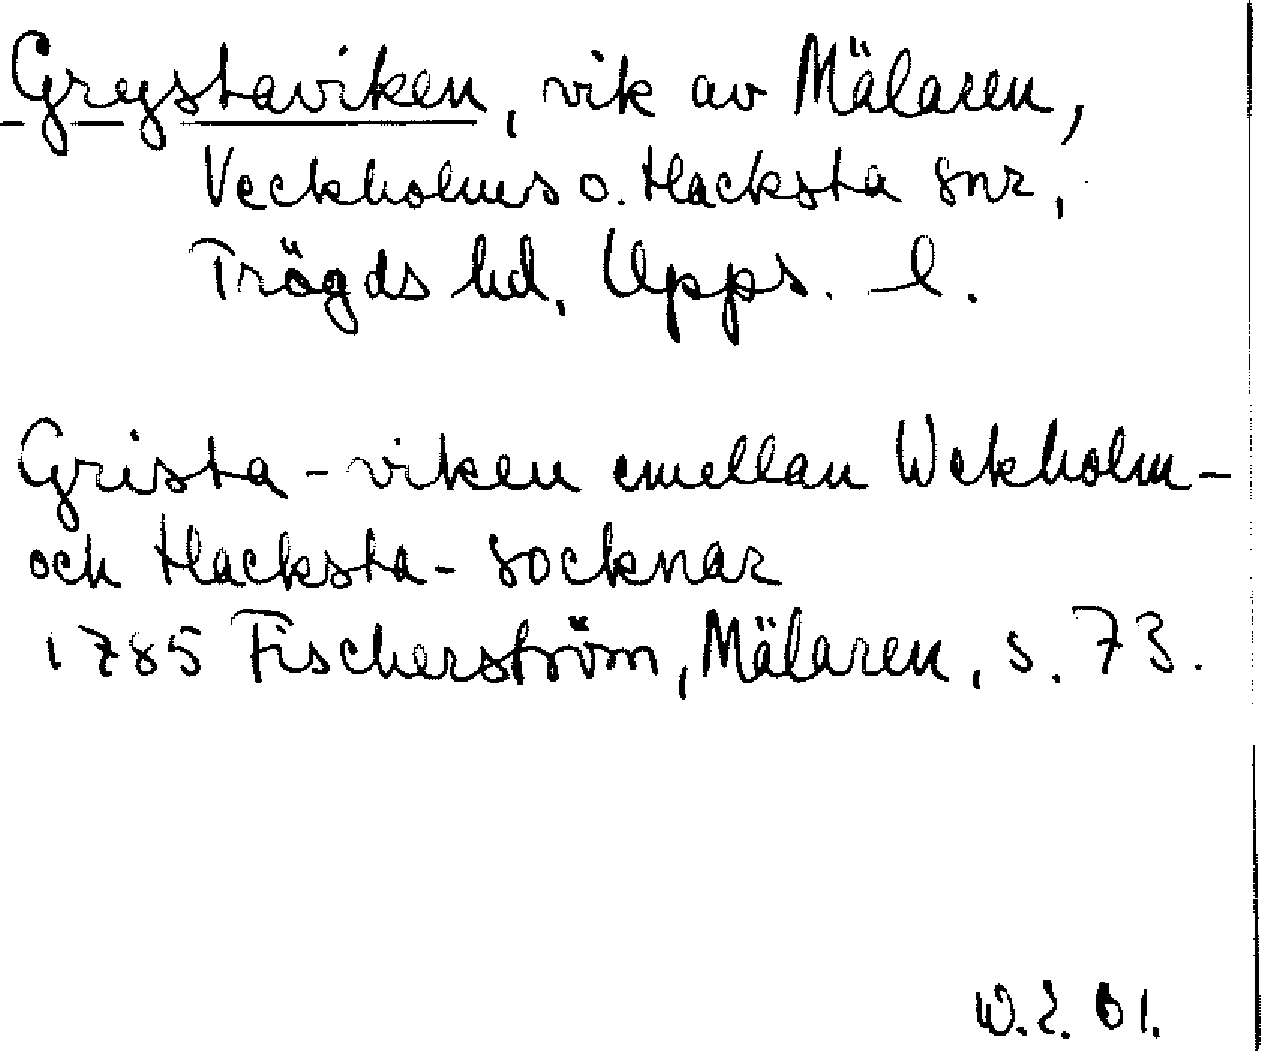 Grystaviken, vik av Mälaren,
Veckholms o. Hacksta snr,
Trögds hd, Upps. l.
Grista-viken emellan Wekholm-
och Hacksta-socknar
1785 Fischerström, Mälaren, s. 73.
61.